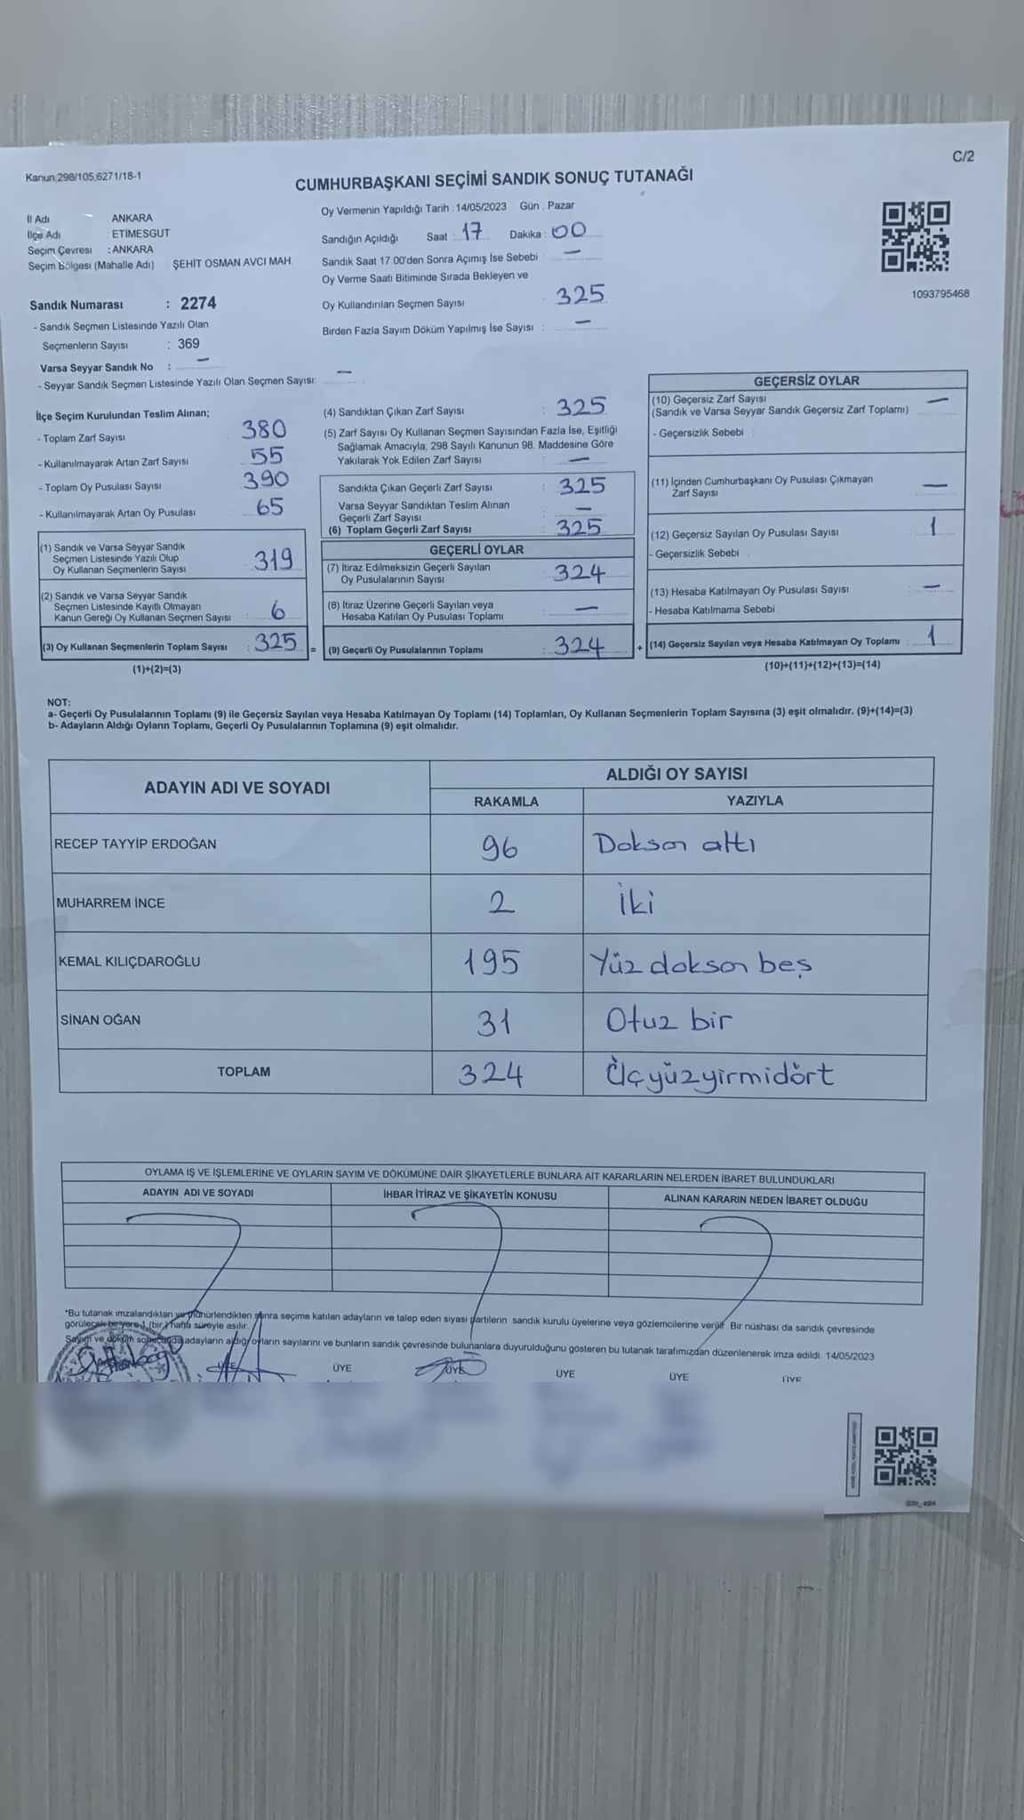 C/2
Kanun;298/105,6271/18-1
CUMHURBAŞKANI SEÇİMİ SANDIK SONUÇ TUTANAĞI
İl Adı ANKARA
İlçe Adı : ETIMESGUT
Seçim Çevresi : ANKARA
Seçim Bölgesi (Mahalle Adı) ŞEHİT OSMAN AVCI MAH.
Oy Vermenin Yapıldığı Tarih : 14/05/2023 Gün : Pazar
Sandığın Açıldığı Saat : 17 Dakika : 00
Sandık Saat 17.00'den Sonra Açımış İse Sebebi : —
Oy Verme Saati Bitiminde Sırada Bekleyen ve
Oy Kullandırılan Seçmen Sayısı : 325
Birden Fazla Sayım Döküm Yapılmış İse Sayısı : —
1093795468
Sandık Numarası : 2274
- Sandık Seçmen Listesinde Yazılı Olan
Seçmenlerin Sayısı : 369
Varsa Seyyar Sandık No : —
- Seyyar Sandık Seçmen Listesinde Yazılı Olan Seçmen Sayısı: —
İlçe Seçim Kurulundan Teslim Alınan;
- Toplam Zarf Sayısı 380
- Kullanılmayarak Artan Zarf Sayısı 55
- Toplam Oy Pusulası Sayısı 390
- Kullanılmayarak Artan Oy Pusulası 65
(1) Sandık ve Varsa Seyyar Sandık
Seçmen Listesinde Yazılı Olup
Oy Kullanan Seçmenlerin Sayısı 319
(2) Sandık ve Varsa Seyyar Sandık
Seçmen Listesinde Kayıtlı Olmayan
Kanun Gereği Oy Kullanan Seçmen Sayısı : 6
(3) Oy Kullanan Seçmenlerin Toplam Sayısı : 325 =
(1)+(2)=(3)
(4) Sandıktan Çıkan Zarf Sayısı : 325
(5) Zarf Sayısı Oy Kullanan Seçmen Sayısından Fazla İse, Eşitliği
Sağlamak Amacıyla, 298 Sayılı Kanunun 98. Maddesine Göre
Yakılarak Yok Edilen Zarf Sayısı —
Sandıkta Çıkan Geçerli Zarf Sayısı : 325
Varsa Seyyar Sandıktan Teslim Alınan
Geçerli Zarf Sayısı —
(6) Toplam Geçerli Zarf Sayısı 325
GEÇERLİ OYLAR
(7) İtiraz Edilmeksizin Geçerli Sayılan
Oy Pusulalarının Sayısı 324
(8) İtiraz Üzerine Geçerli Sayılan veya
Hesaba Katılan Oy Pusulası Toplamı —
(9) Geçerli Oy Pusulalarının Toplamı : 324 +
GEÇERSİZ OYLAR
(10) Geçersiz Zarf Sayısı —
(Sandık ve Varsa Seyyar Sandık Geçersiz Zarf Toplamı)
- Geçersizlik Sebebi :
(11) İçinden Cumhurbaşkanı Oy Pusulası Çıkmayan
Zarf Sayısı —
(12) Geçersiz Sayılan Oy Pusulası Sayısı : 1
- Geçersizlik Sebebi :
(13) Hesaba Katılmayan Oy Pusulası Sayısı : —
- Hesaba Katılmama Sebebi :
(14) Geçersiz Sayılan veya Hesaba Katılmayan Oy Toplamı : 1
(10)+(11)+(12)+(13)=(14)
NOT:
a- Geçerli Oy Pusulalarının Toplamı (9) ile Geçersiz Sayılan veya Hesaba Katılmayan Oy Toplamı (14) Toplamları, Oy Kullanan Seçmenlerin Toplam Sayısına (3) eşit olmalıdır. (9)+(14)=(3)
b- Adayların Aldığı Oyların Toplamı, Geçerli Oy Pusulalarının Toplamına (9) eşit olmalıdır.
ADAYIN ADI VE SOYADI ALDIĞI OY SAYISI
RAKAMLA YAZIYLA
RECEP TAYYİP ERDOĞAN 96 Doksan altı
MUHARREM İNCE 2 İki
KEMAL KILIÇDAROĞLU 195 Yüz doksan beş
SİNAN OĞAN 31 Otuz bir
TOPLAM 324 Üçyüzyirmidört
OYLAMA İŞ VE İŞLEMLERİNE VE OYLARIN SAYIM VE DÖKÜMÜNE DAİR ŞİKAYETLERLE BUNLARA AİT KARARLARIN NELERDEN İBARET BULUNDUKLARI
ADAYIN ADI VE SOYADI İHBAR İTİRAZ VE ŞİKAYETİN KONUSU ALINAN KARARIN NEDEN İBARET OLDUĞU
*Bu tutanak imzalandıktan ve mühürlendikten sonra seçime katılan adayların ve talep eden siyasi partilerin sandık kurulu üyelerine veya gözlemcilerine verilir. Bir nüshası da sandık çevresinde
görülecek bir yere 1 (bir) hafta süreyle asılır.
Sayım ve döküm sonucunda adayların aldığı oyların sayılarını ve bunların sandık çevresinde bulunanlara duyurulduğunu gösteren bu tutanak tarafımızdan düzenlenerek imza edildi. 14/05/2023
ÜYE ÜYE ÜYE ÜYE ÜYE ÜYE